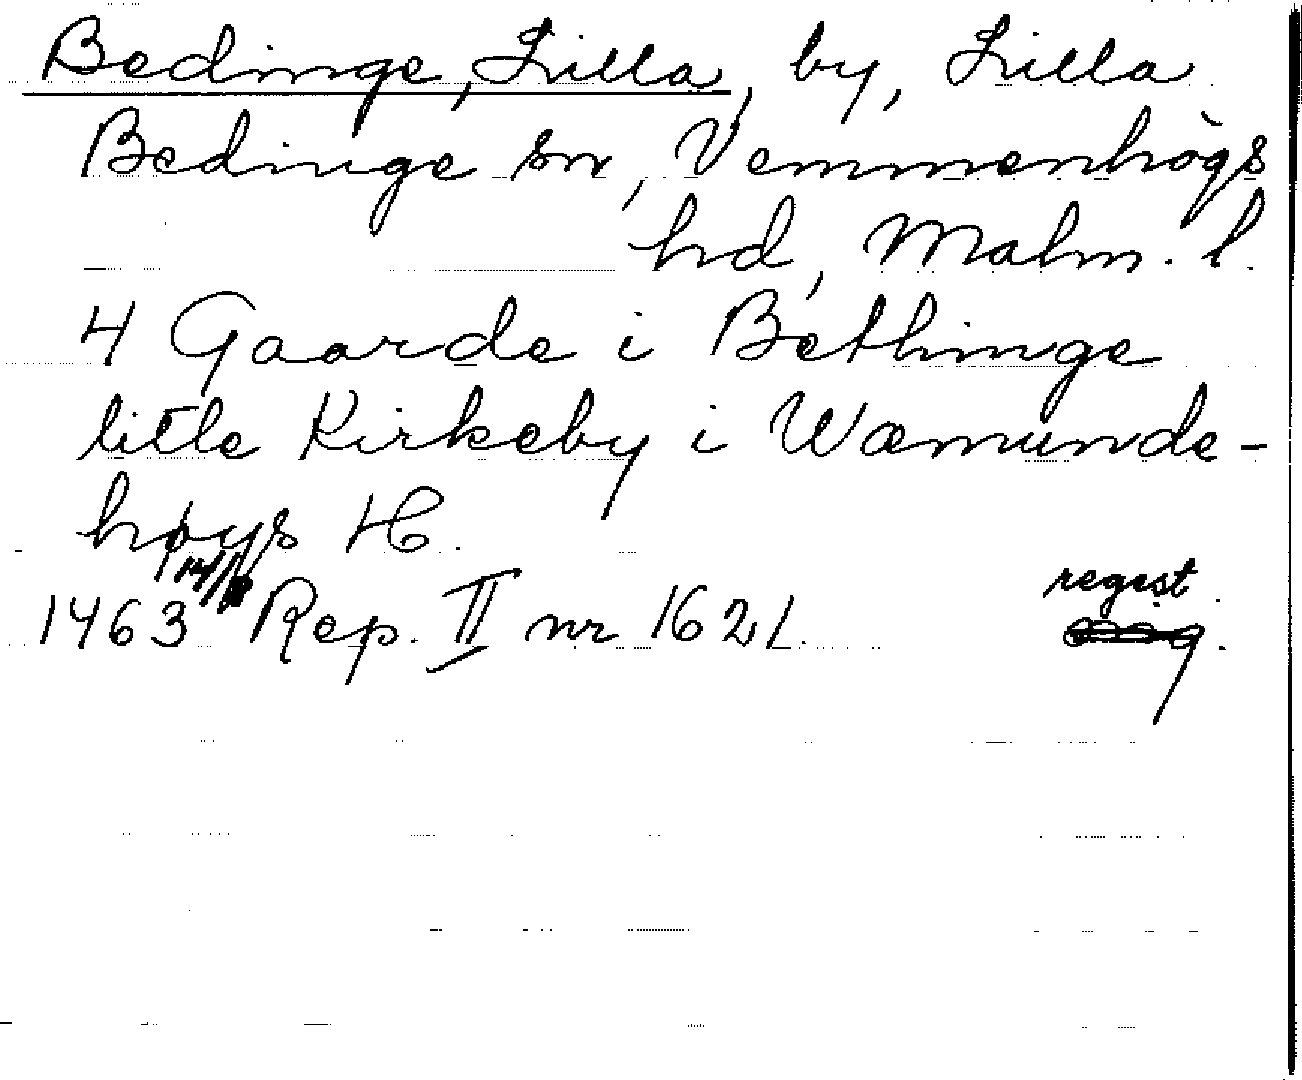 Bedinge, Lilla, by, Lilla
Bedinge sn, Vemmenhögs
hd, Malm. l.
4 Gaarde i Bethinge
litle Kirkeby i Wæmunde-
høys H.
1463 Rep. II nr 1621.
regest.